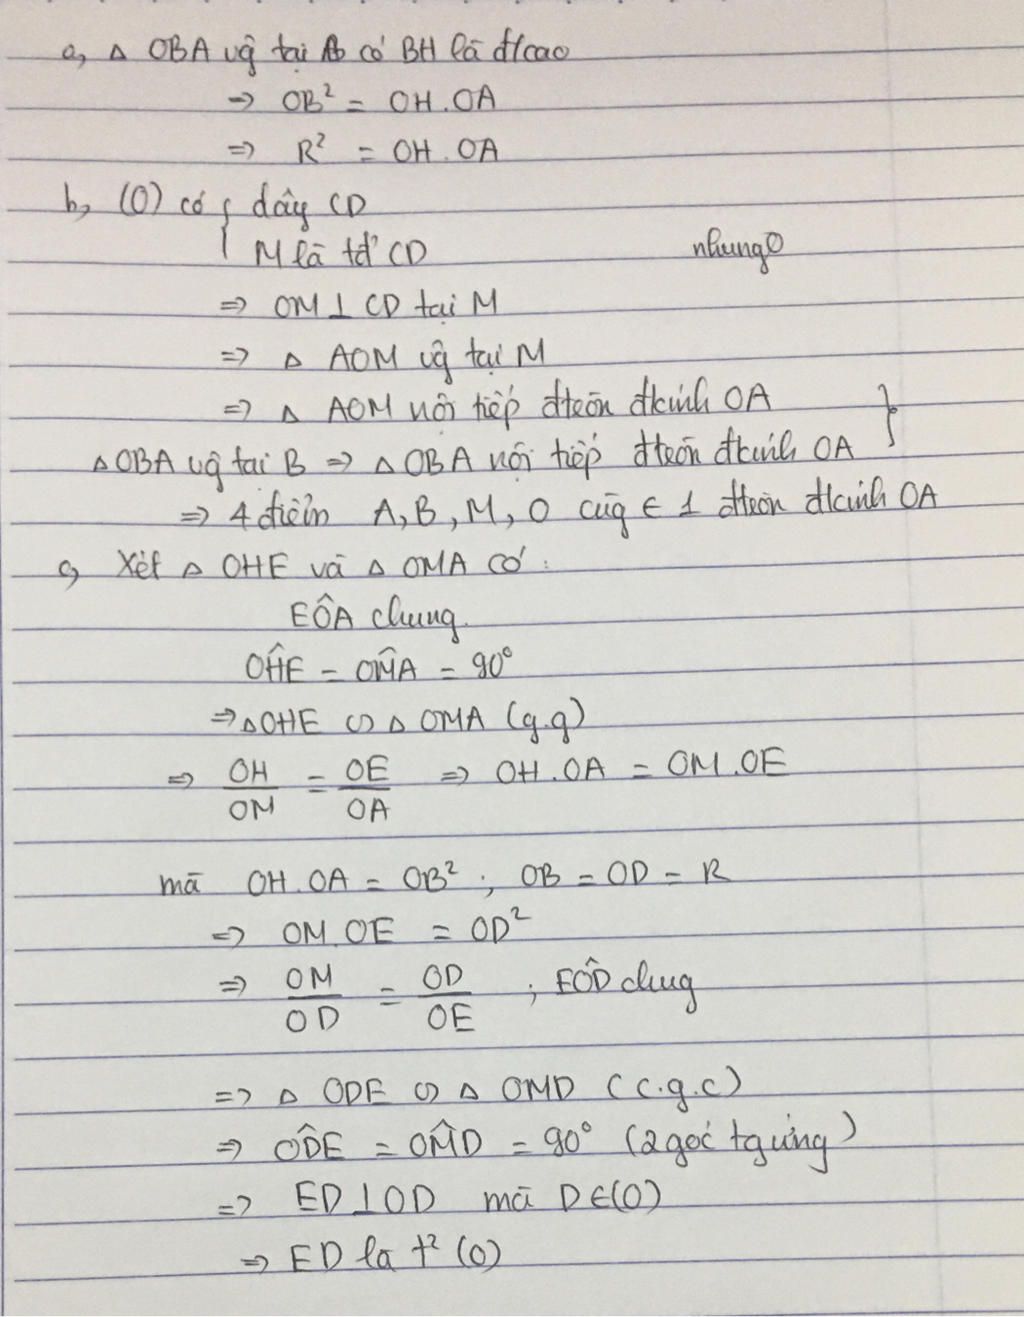 a, △ OBA vg̃ tại B có BH là đ/cao
⇒ OB² = OH.OA
⇒ R² = OH.OA
b, (O) có { dây CD
M là tđ' CD
nhung
⇒ OM ⊥ CD tại M
⇒ △ AOM vg̃ tại M
⇒ △ AOM nội tiếp đtròn đkính OA }
△ OBA vg̃ tại B ⇒ △ OBA nội tiếp đtròn đkính OA
⇒ 4 điểm A, B, M, O cùg ∈ 1 đtròn đkính OA
c, Xét △ OHE và △ OMA có :
EÔA chung
OĤE = OM̂A = 90°
⇒ △ OHE ∽ △ OMA (g.g)
⇒ OH/OM = OE/OA ⇒ OH.OA = OM.OE
mà OH.OA = OB² ; OB = OD = R
⇒ OM.OE = OD²
⇒ OM/OD = OD/OE ; EÔD chug
⇒ △ ODE ∽ △ OMD (c.g.c)
⇒ OD̂E = OM̂D = 90° (2 góc tg ứng)
⇒ ED ⊥ OD mà D ∈ (O)
⇒ ED là t² (O)